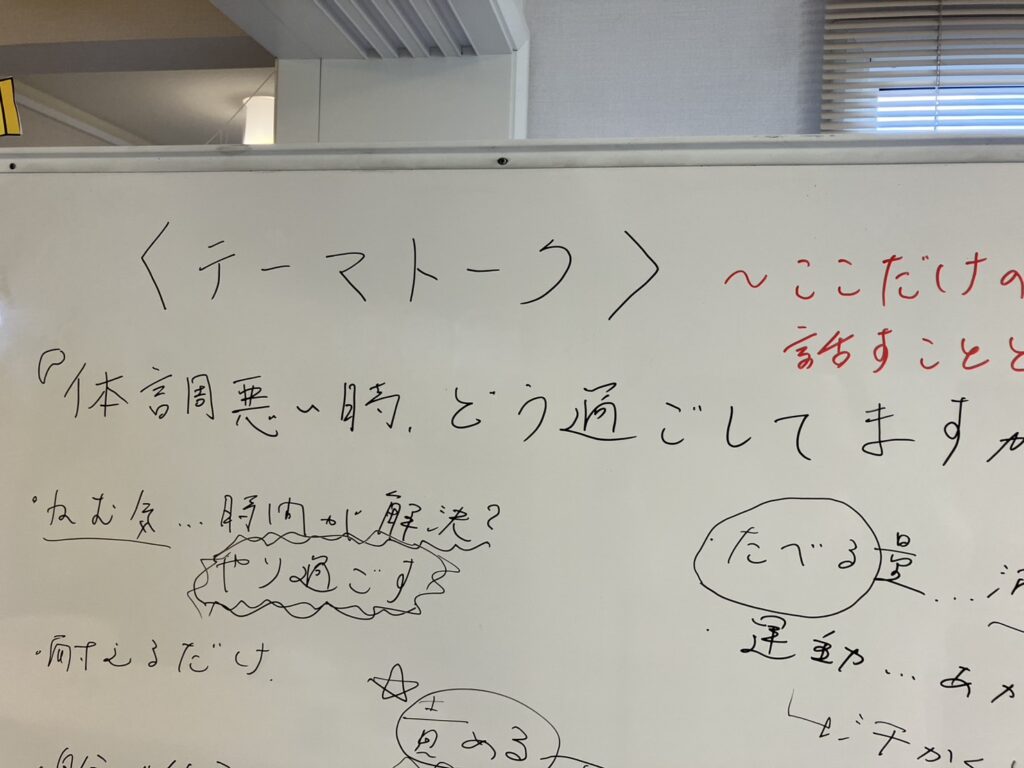 〈テーマトーク〉
～ここだけの
話すことと
『体調悪い時、どう過ごしてますか
・ねむ気…時間が解決？
やり過ごす
・耐えるだけ
たべる量…
・運動…あか